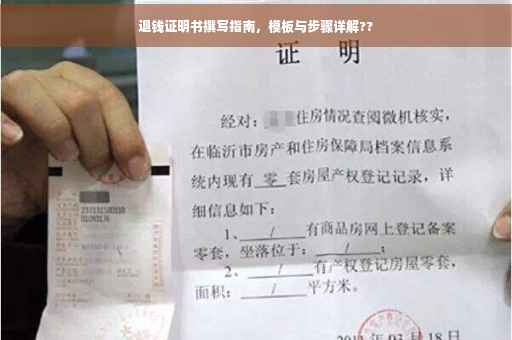 退钱证明书撰写指南，模板与步骤详解??
证 明
经对：住房情况查阅微机核实，
在临沂市房产和住房保障局档案信息系
统内现有 零 套房屋产权登记记录，详
细信息如下：
1、 / 有商品房网上登记备案
零套，坐落位于： / ；
2、 / 有产权登记房屋零套，
面积： / 平方米。
03月18日